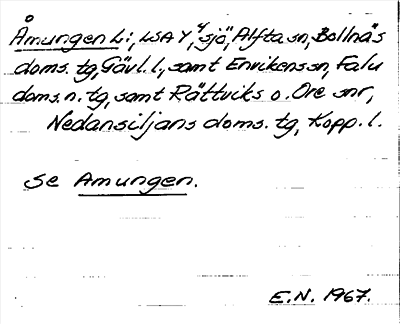 Åmungen L:, LSA Y, 4 sjö, Alfta sn, Bollnäs
doms. tg, Gävl. l., samt Envikens sn, Falu
doms. n. tg, samt Rättviks o. Ore snr,
Nedansiljans doms. tg, Kopp. l.
Se Amungen.
E.N. 1967.